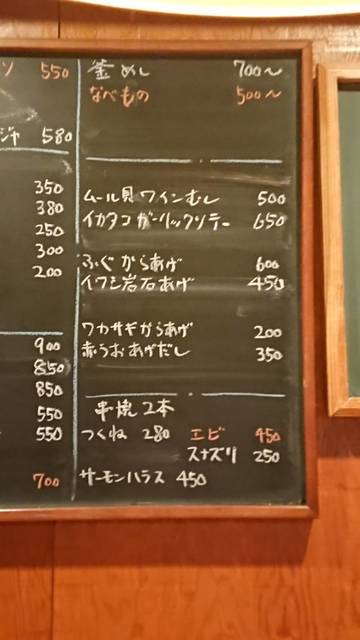 ソ 550
ジャ 580
350
380
250
300
200
900
850
850
550
550
700
釜めし 700～
なべもの 500～
ムール貝ワインむし 500
イカタコガーリックソテー 650
ふぐからあげ 600
イワシ岩石あげ 450
ワカサギからあげ 200
赤うおあげだし 350
串焼2本
つくね 280 エビ 450
スナズリ 250
サーモンハラス 450